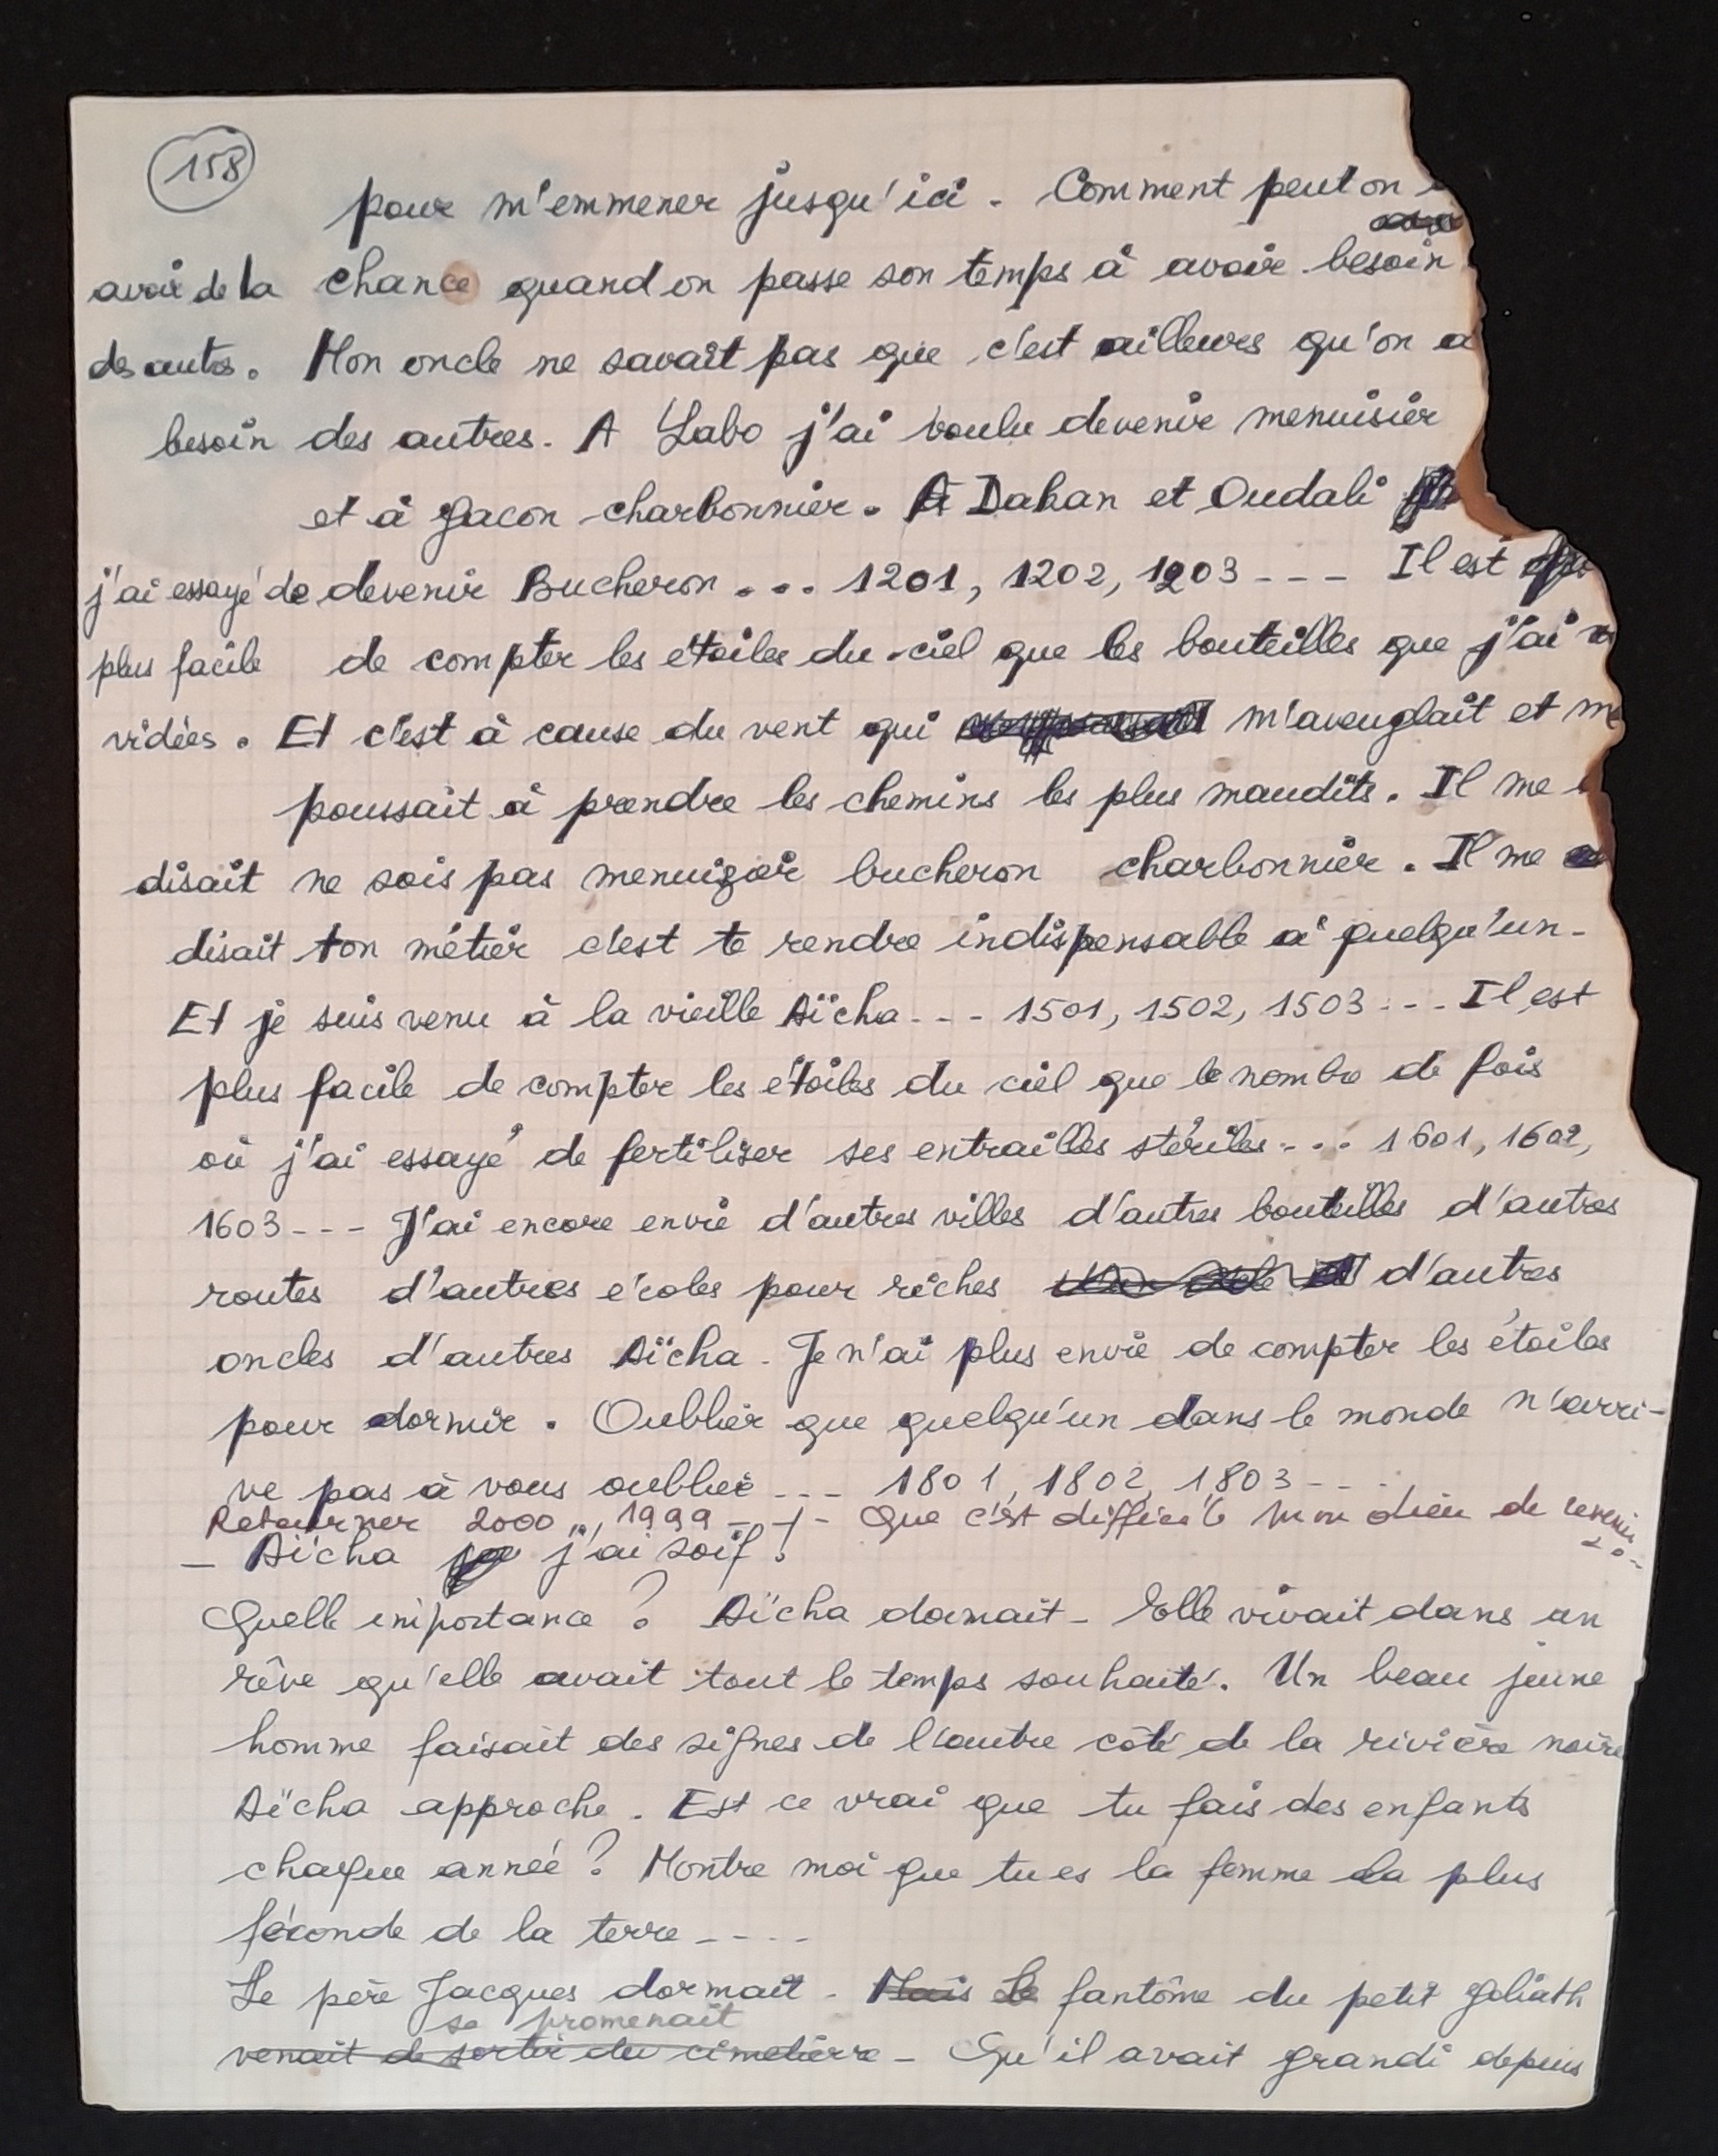 158
pour m'emmener jusqu'ici - Comment peut on
avoir de la chance quand on passe son temps à avoir besoin
des autres. Mon oncle ne savait pas que c'est ailleurs qu'on a
besoin des autres. A Labo j'ai voulu devenir menuisier
et à Gacon charbonnier. A Dahan et Oudali
j'ai essayé de devenir Bucheron ... 1201, 1202, 1203 --- Il est
plus facile de compter les étoiles du ciel que les bouteilles que j'ai
vidées. Et c'est à cause du vent qui m'aveuglait et me
poussait à prendre les chemins les plus maudits. Il me
disait ne sois pas menuisier bucheron charbonnier. Il me
disait ton métier c'est te rendre indispensable à quelqu'un-
Et je suis venu à la vieille Aïcha --- 1501, 1502, 1503 --- Il est
plus facile de compter les étoiles du ciel que le nombre de fois
où j'ai essayé de fertiliser ses entrailles stériles --- 1601, 1602,
1603 --- J'ai encore envie d'autres villes d'autres bouteilles d'autres
routes d'autres écoles pour riches d'autres
oncles d'autres Aïcha - Je n'ai plus envie de compter les étoiles
pour dormir. Oublier que quelqu'un dans le monde n'arri-
ve pas à vous oublier --- 1801, 1802, 1803 ---
Retourner 2000 ,,, 1999 --- Que c'est difficile mon dieu de revenir
- Aïcha j'ai soif !
Quelle importance ? Aïcha dormait - Elle vivait dans un
rêve qu'elle avait tout le temps souhaité. Un beau jeune
homme faisait des signes de l'autre côté de la rivière noire
Aïcha approche. Est ce vrai que tu fais des enfants
chaque année ? Montre moi que tu es la femme la plus
féconde de la terre ----
Le père Jacques dormait - Mais Le fantôme du petit Goliath
se promenait
venait de sortir du cimetière - Qu'il avait grandi depuis